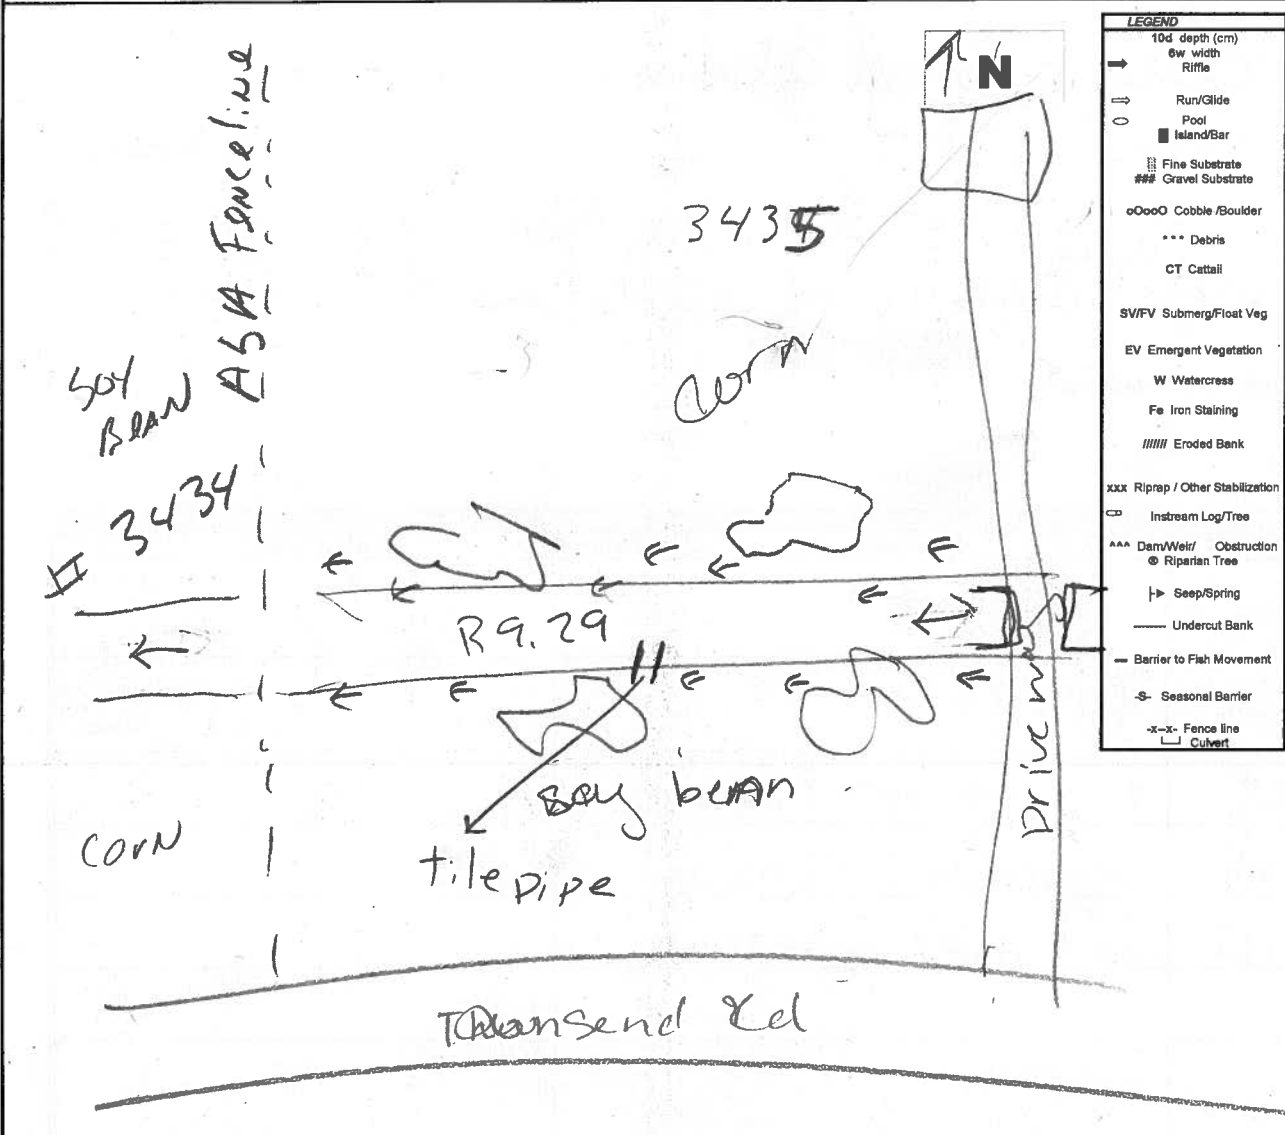 LEGEND
10d depth (cm)
6w width
Riffle
Run/Glide
Pool
Island/Bar
Fine Substrate
### Gravel Substrate
oOooO Cobble/Boulder
*** Debris
CT Cattail
SV/FV Submerg/Float Veg
EV Emergent Vegetation
W Watercress
Fe Iron Staining
/////// Eroded Bank
xxx Riprap / Other Stabilization
Instream Log/Tree
^^^ Dam/Weir/ Obstruction
® Riparian Tree
Seep/Spring
Undercut Bank
Barrier to Fish Movement
-S- Seasonal Barrier
-x--x- Fence line
Culvert
N
Fenceline
3435
Corn
Soy
Bean
3434
R9.29
soy bean
Driveway
Corn
tile pipe
Townsend Rd